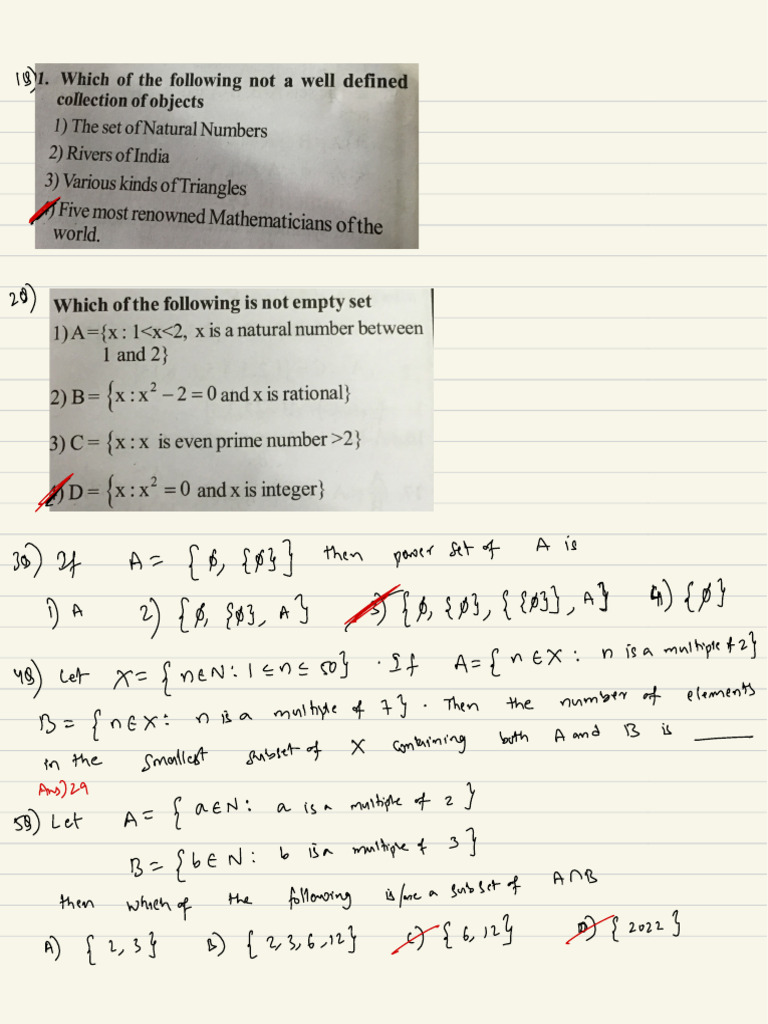 1Q) 1. Which of the following not a well defined
collection of objects
1) The set of Natural Numbers
2) Rivers of India
3) Various kinds of Triangles
4) Five most renowned Mathematicians of the
world.
2Q) Which of the following is not empty set
1) A={x : 1<x<2, x is a natural number between
1 and 2}
2) B = {x : x² − 2 = 0 and x is rational}
3) C = {x : x is even prime number >2}
4) D = {x : x² = 0 and x is integer}
3Q) If A = {ϕ, {ϕ}} then power set of A is
1) A 2) {ϕ, {ϕ}, A} 3) {ϕ, {ϕ}, {{ϕ}}, A} 4) {ϕ}
4Q) Let X = {n∈N : 1 ≤ n ≤ 50} . If A = {n∈X : n is a multiple of 2}
B = {n∈X : n is a multiple of 7} . Then the number of elements
in the smallest subset of X containing both A and B is ______
Ans) 29
5Q) Let A = {a∈N : a is a multiple of 2}
B = {b∈N : b is a multiple of 3}
then which of the following is/are a subset of A∩B
A) {2, 3} B) {2, 3, 6, 12} C) {6, 12} D) {2022}